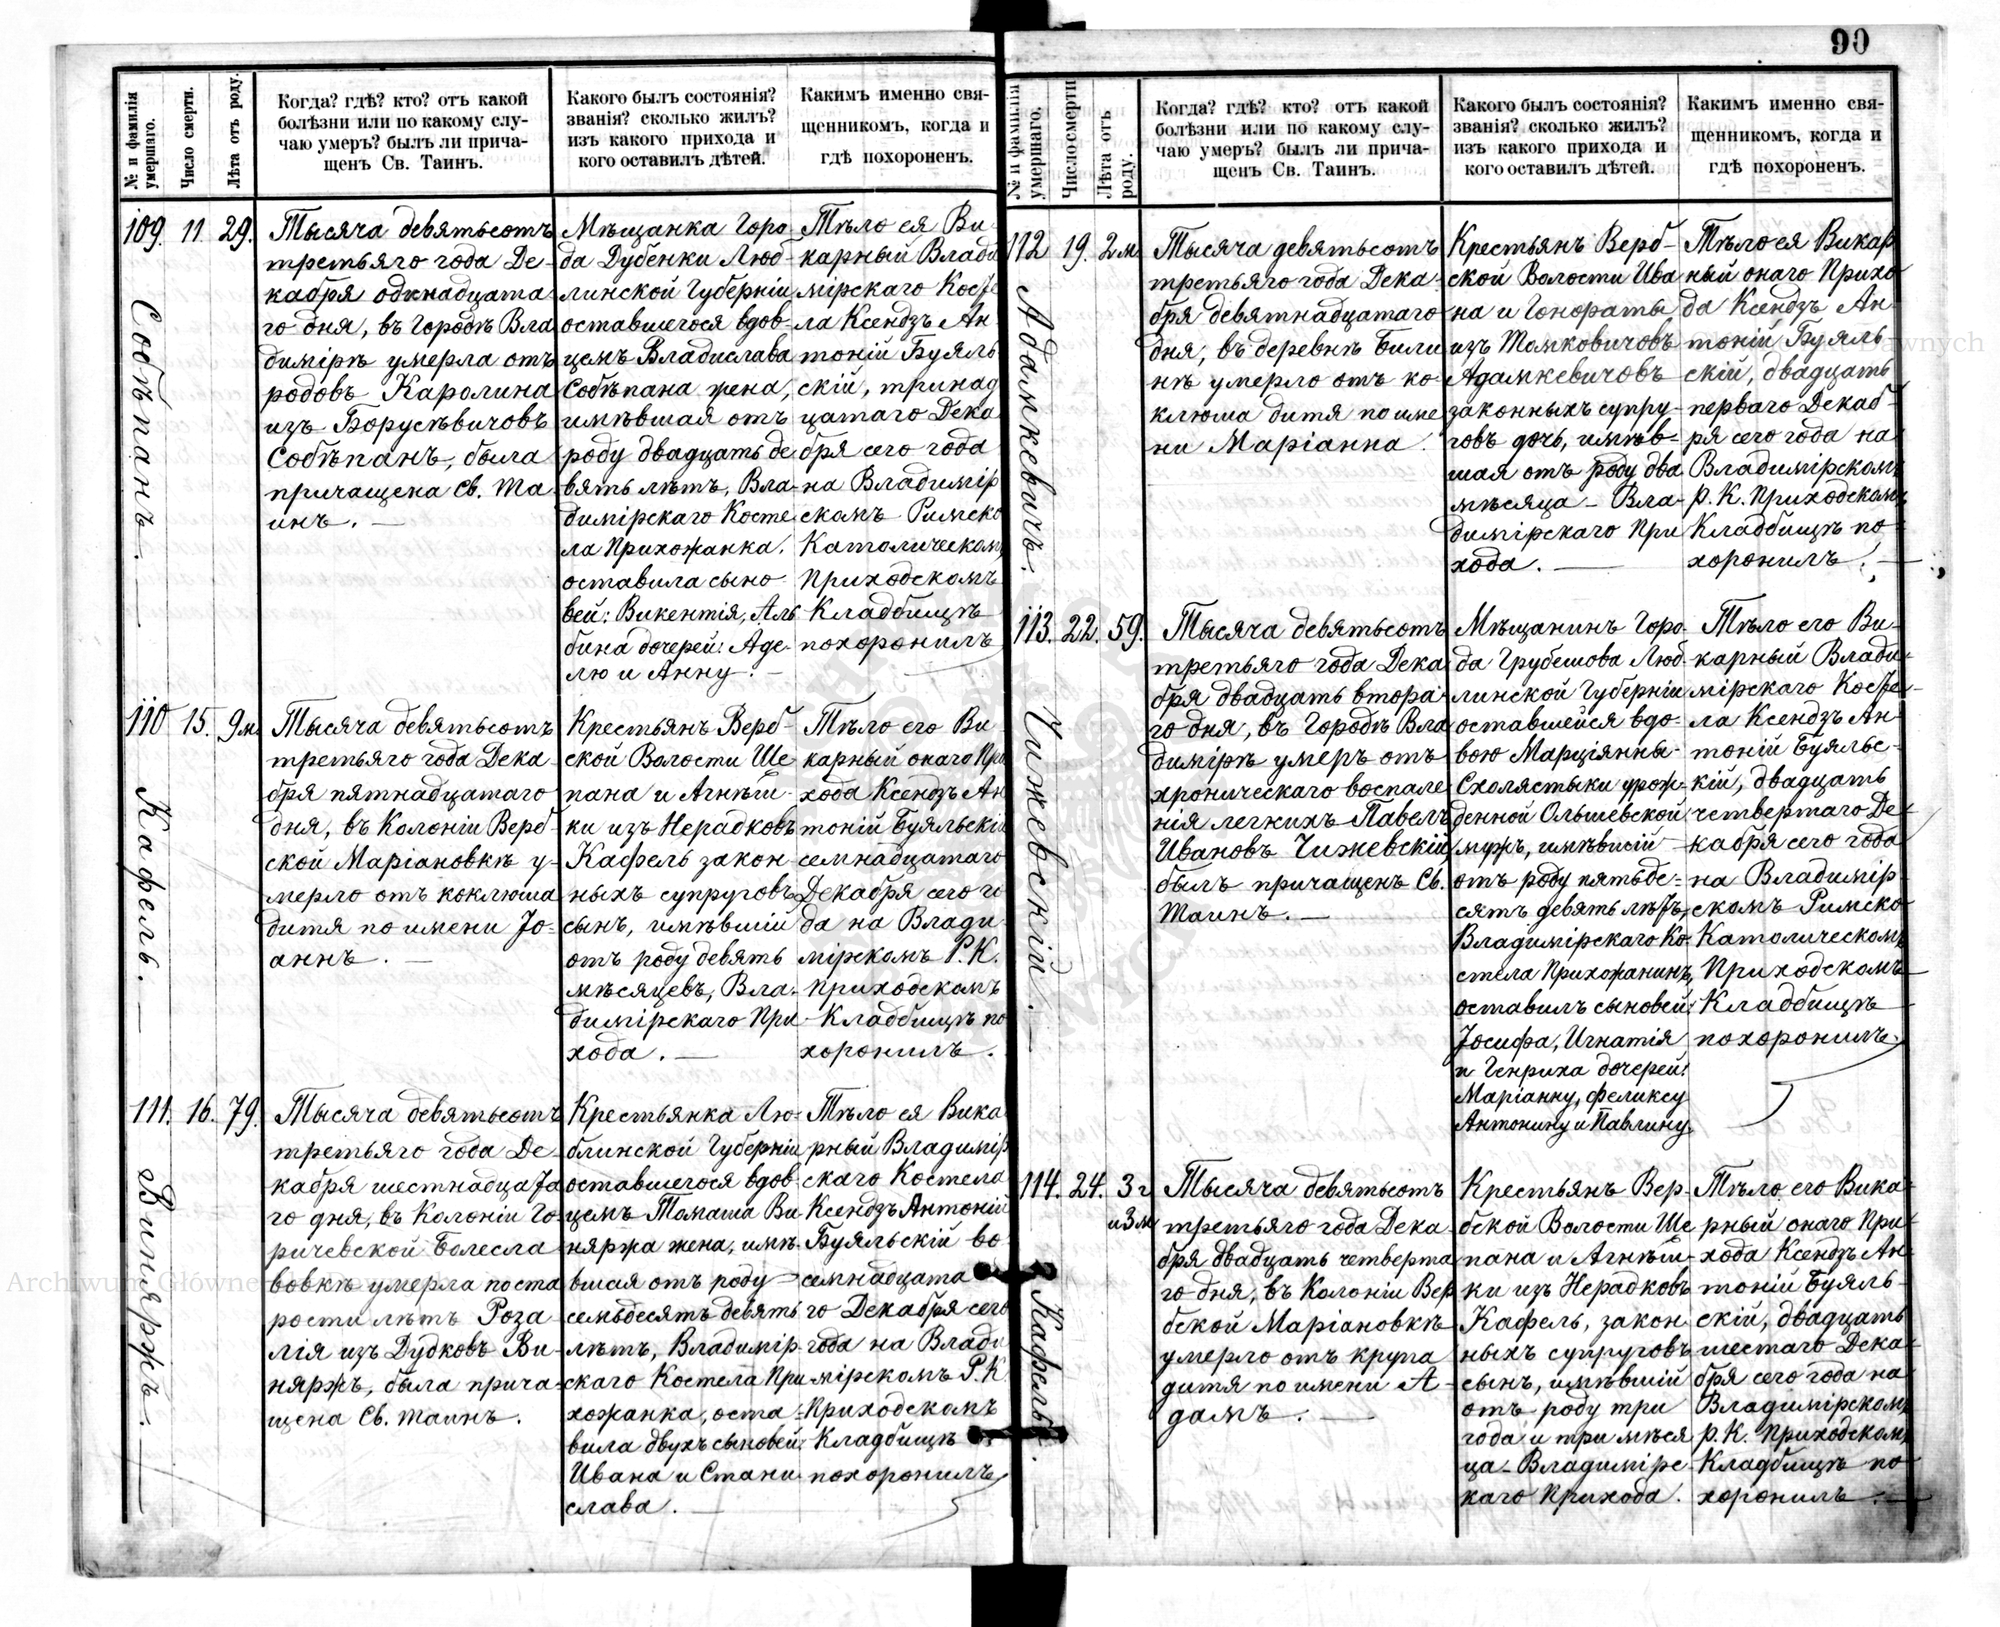 90
№ и фамилія умершаго.
Число смерти.
Лѣта отъ роду.
Когда? гдѣ? кто? отъ какой
болѣзни или по какому слу-
чаю умеръ? былъ ли прича-
щенъ Св. Таинъ.
Какого былъ состоянія?
званія? сколько жилъ?
изъ какого прихода и
кого оставилъ дѣтей.
Какимъ именно свя-
щенникомъ, когда и
гдѣ похороненъ.
109.
Собѣпанъ.
11
29.
Тысяча девятьсотъ
третьяго года Де-
кабря одинадцата
го дня, въ Городѣ Вла
димірѣ умерла отъ
родовъ Каролина
изъ Борусѣвичовъ
Собѣпанъ, была
причащена Св. Та
инъ.
Мѣщанка Горо
да Дубенки Люб-
линской Губерніи
оставшегося вдов-
цемъ Владислава
Собѣпана жена,
имѣвшая отъ
роду двадцать де
вять лѣтъ, Вла-
димірскаго Косте
ла Прихожанка.
оставила сыно
вей: Викентія, Аль
бина дочерей: Аде-
лю и Анну.
Тѣло ея Ви
карный Влади
мірскаго Косте
ла Ксендзъ Ан
тоній Буяль
скій, тринад
цатаго Дека
бря сего года
на Владимір
скомъ Римско
Католическом
Приходскомъ
Кладбищѣ
похоронилъ
110
Кафель.
15.
9 м.
Тысяча девятьсотъ
третьяго года Дека-
бря пятнадцатаго
дня, въ Колоніи Верб-
ской Маріановкѣ у-
мерло отъ коклюша
дитя по имени Іо-
аннъ.
Крестьянъ Верб-
ской Волости Ще
пана и Агнѣш-
ки изъ Нерадковъ
Кафель закон
ныхъ супруговъ
сынъ, имѣвшій
отъ роду девять
мѣсяцевъ, Вла-
димірскаго При
хода.
Тѣло его Ви
карный онаго При
хода Ксендзъ Ан
тоній Буяльскій
семнадцатаго
Декабря сего го
да на Влади-
мірскомъ Р. К.
Приходскомъ
Кладбищѣ по
хоронилъ.
111.
Виняржъ.
16.
79.
Тысяча девятьсотъ
третьяго года Де-
кабря шестнадцата
го дня, въ Колоніи Го-
ричевской Болесла
вовкѣ умерла по ста
рости лѣтъ Роза-
лія изъ Дудковъ Ви-
няржъ, была прича-
щена Св. Таинъ.
Крестьянка Лю-
блинской Губерніи
оставшегося вдов
цемъ Томаша Ви
няржа жена, имѣ-
вшая отъ роду
семьдесятъ девять
лѣтъ, Владимір-
скаго Костела При
хожанка, оста-
вила двухъ сыновей:
Ивана и Стани-
слава.
Тѣло ея Вика
рный Владимір
скаго Костела
Ксендзъ Антоній
Буяльскій во
семнадцата
го Декабря сего
года на Влади
мірскомъ Р. К
Приходскомъ
Кладбищѣ
похоронилъ
№ и фамилія умершаго.
Число смерти
Лѣта отъ роду.
Когда? гдѣ? кто? отъ какой
болѣзни или по какому слу-
чаю умеръ? былъ ли прича-
щенъ Св. Таинъ.
Какого былъ состоянія?
званія? сколько жилъ?
изъ какого прихода и
кого оставилъ дѣтей.
Какимъ именно свя-
щенникомъ, когда и
гдѣ похороненъ.
112
Адамкевичъ.
19.
2 м.
Тысяча девятьсотъ
третьяго года Дека-
бря девятнадцатаго
дня, въ деревнѣ Били
нѣ умерло отъ ко-
клюша дитя по име
ни Маріанна.
Крестьянъ Верб-
ской Волости Ива
на и Гонораты
изъ Томковичовъ
Адамкевичовъ
законныхъ супру-
говъ дочь, имѣв-
шая отъ роду два
мѣсяца - Вла-
димірскаго При
хода.
Тѣло ея Викар
ный онаго Прихо
да Ксендзъ Ан-
тоній Буяль
скій, двадцать
перваго Декаб-
ря сего года на
Владимірскомъ
Р. К. Приходскомъ
Кладбищѣ по-
хоронилъ.
113.
Чижевскій.
22.
59.
Тысяча девятьсотъ
третьяго года Дека
бря двадцать втора-
го дня, въ Городѣ Вла
димірѣ умеръ отъ
хроническаго воспале
нія легкихъ Павелъ
Ивановъ Чижевскій
былъ причащенъ Св.
Таинъ.
Мѣщанинъ Горо-
да Грубешова Люб-
линской Губерніи
оставшейся вдо-
вою Марціянны-
Схолястыки урож-
денной Ольшевской
мужъ, имѣвшій
отъ роду пятьде-
сятъ девять лѣтъ,
Владимірскаго Ко-
стела Прихожанинъ,
оставилъ сыновей:
Іосифа, Игнатія
и Генриха дочерей:
Маріанну, Феликсу
Антонину и Павлину
Тѣло его Ви-
карный Влади-
мірскаго Косте-
ла Ксендзъ Ан-
тоній Буяльс-
кій, двадцать
четвертаго Де-
кабря сего года
на Владимір-
скомъ Римско
Католическомъ
Приходскомъ
Кладбищѣ
похоронилъ.
114.
Кафель.
24.
3 г.
и 3 м
Тысяча девятьсотъ
третьяго года Дека-
бря двадцать четверта
го дня, въ Колоніи Вер
бской Маріановкѣ
умерло отъ крупа
дитя по имени А-
дамъ.
Крестьянъ Вер
бской Волости Ще
пана и Агнѣш-
ки изъ Нерадковъ
Кафель, закон
ныхъ супруговъ
сынъ, имѣвшій
отъ роду три
года и три мѣся
ца - Владимірс
каго Прихода.
Тѣло его Вика-
рный онаго При-
хода Ксендзъ Ан-
тоній Буяль-
скій, двадцать
шестаго Дека-
бря сего года на
Владимірском
Р. К. Приходском
Кладбищѣ по-
хоронилъ.